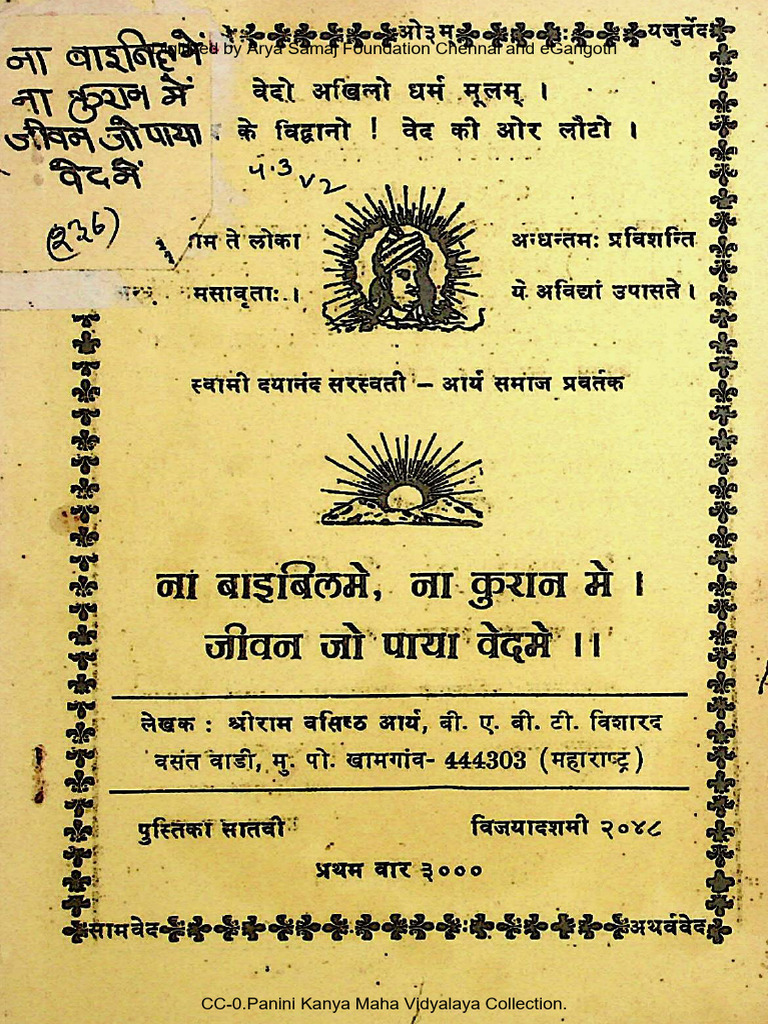 ओ३म् यजुर्वेद
Digitized by Arya Samaj Foundation Chennai and eGangotri
ना बाइबिल में
ना कुरान में
जीवन जो पाया
वेद में
(236)
वेदो अखिलो धर्म मूलम् ।
के विद्वानो ! वेद की ओर लौटो ।
ते लोका अन्धन्तमः प्रविशन्ति
मसावृताः । ये अविद्यां उपासते ।
स्वामी दयानंद सरस्वती – आर्य समाज प्रवर्तक
ना बाइबिलमे, ना कुरान मे ।
जीवन जो पाया वेदमे ।।
लेखक : श्रीराम वसिष्ठ आर्य, बी. ए. बी. टी. विशारद
वसंत वाडी, मु. पो. खामगांव- 444303 (महाराष्ट्र)
पुस्तिका सातवी विजयादशमी २०४८
प्रथम वार ३०००
सामवेद अथर्ववेद
CC-0.Panini Kanya Maha Vidyalaya Collection.